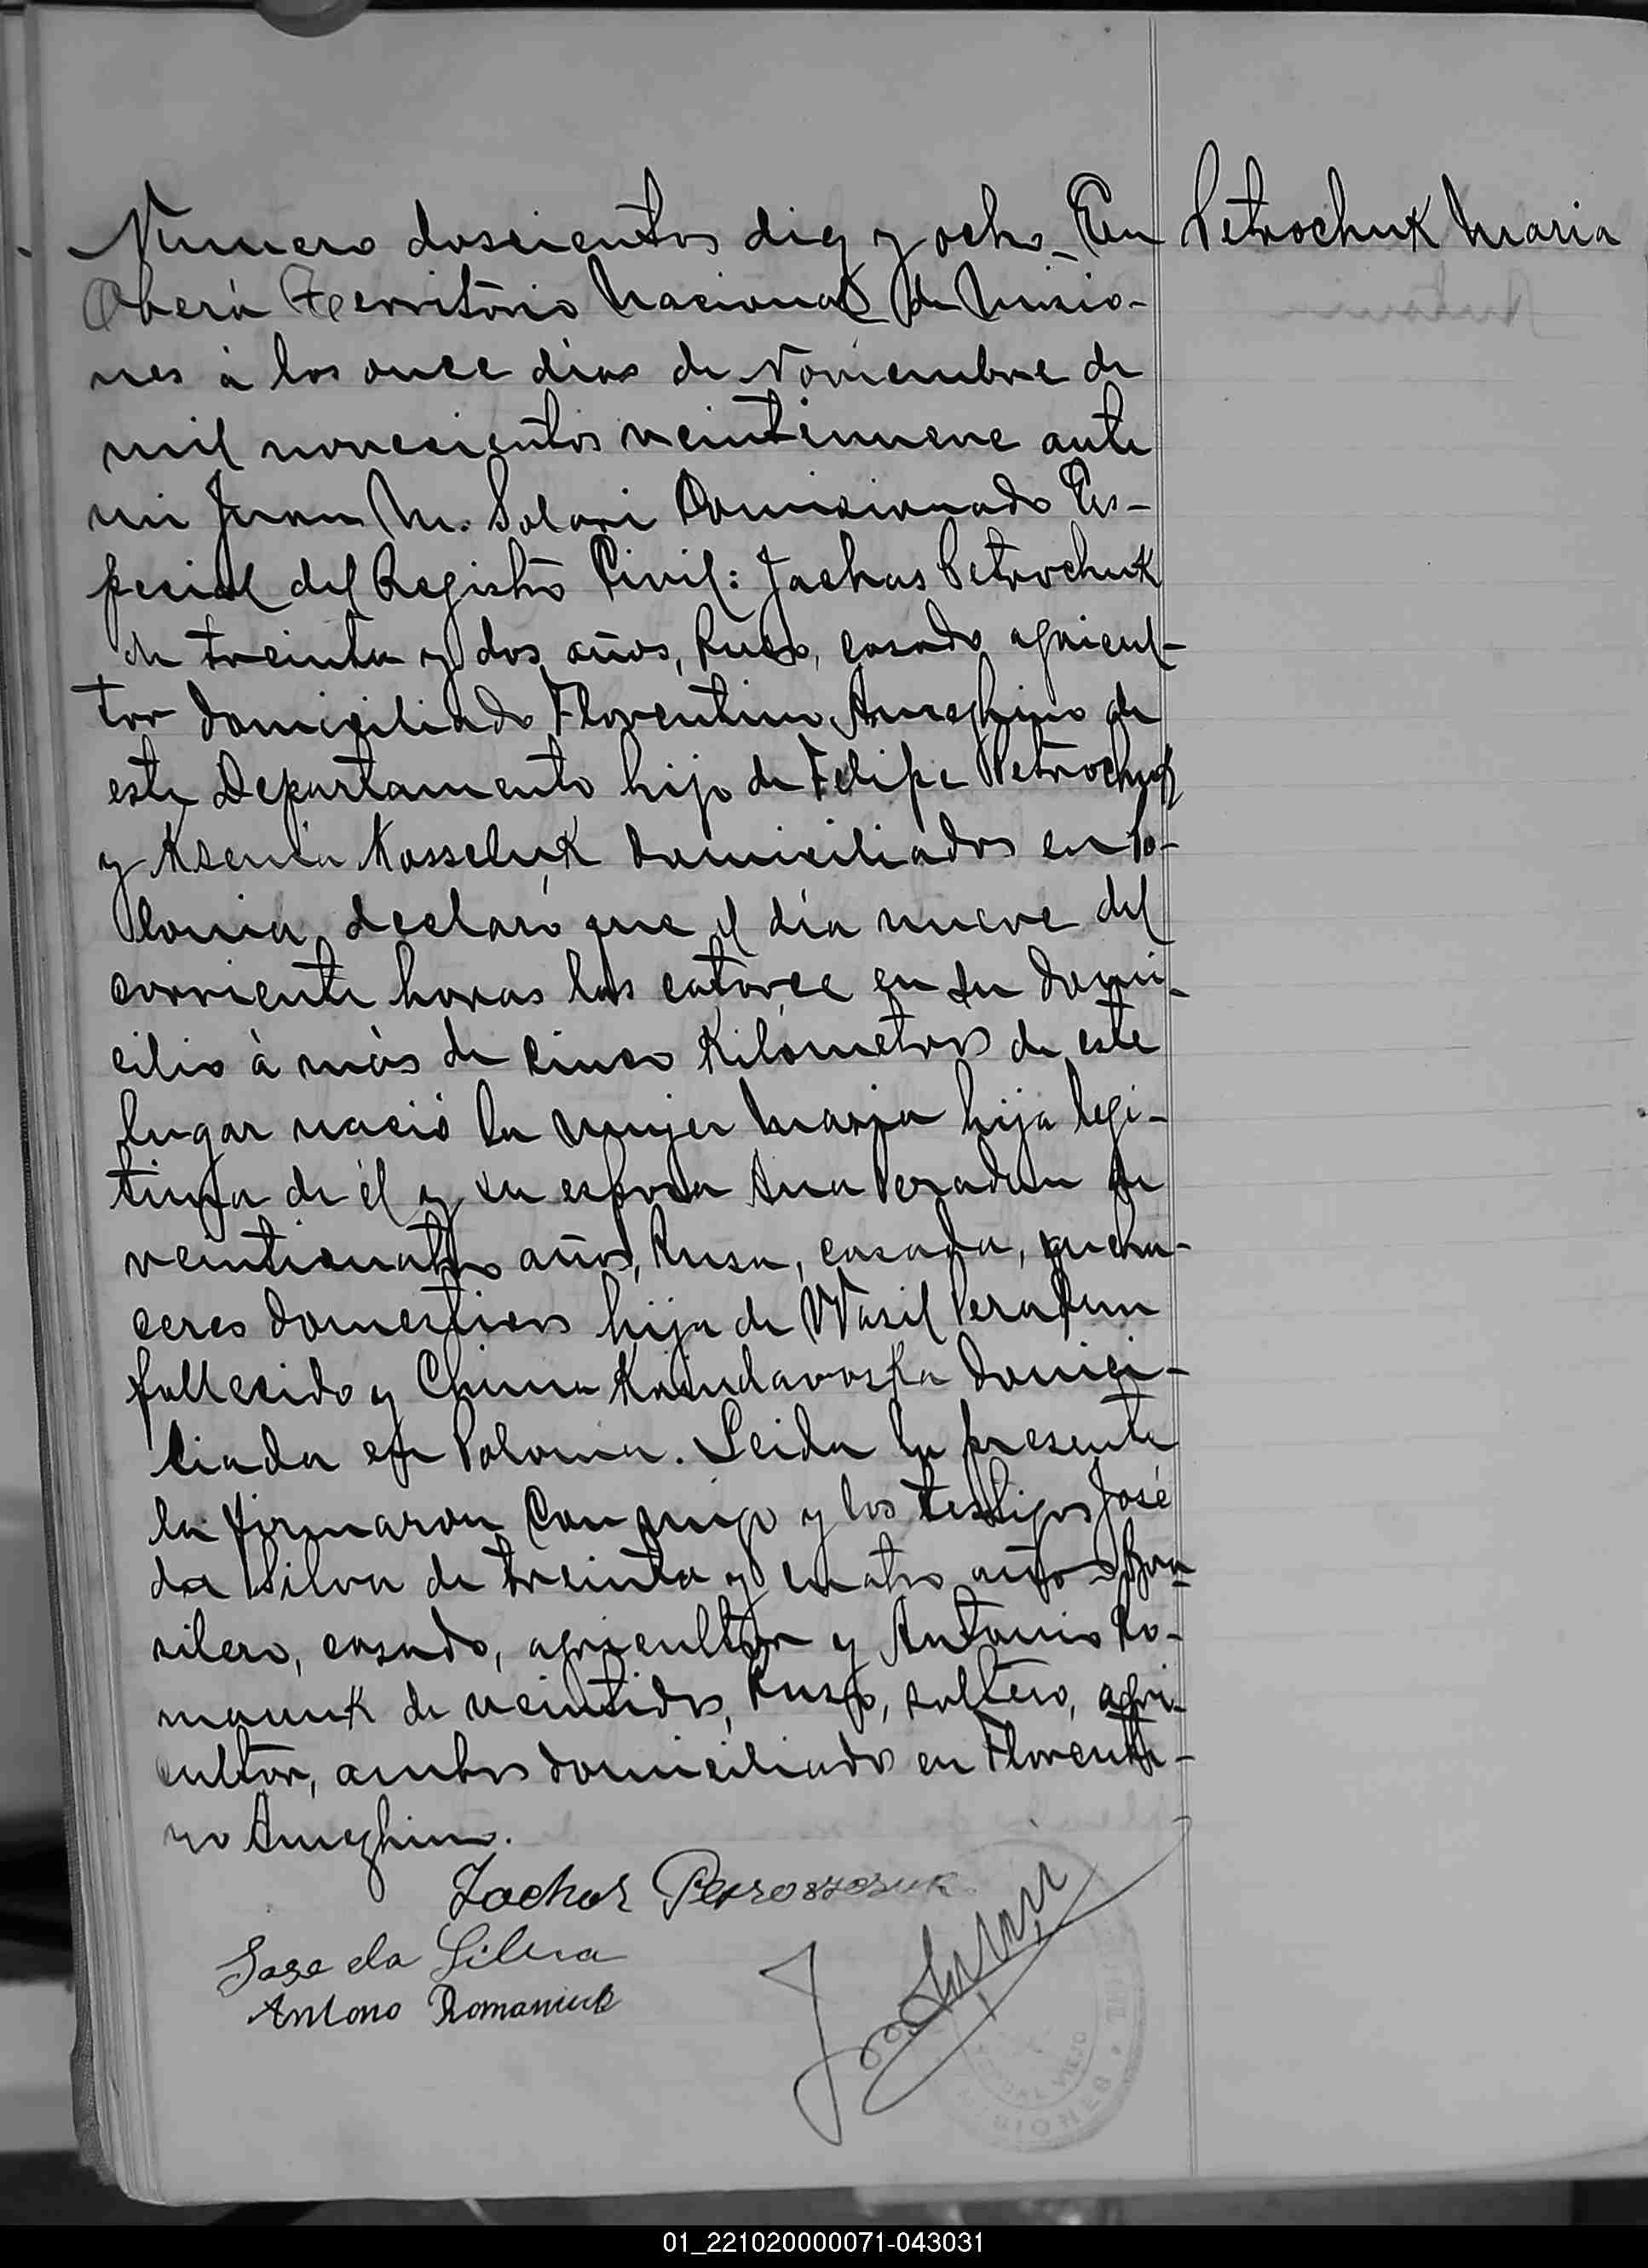 Petrochuk Maria
Número doscientos diez y ocho_ En
Oberá Territorio Nacional de Misio-
nes á los once dias de Noviembre de
mil novecientos veintinueve ante
mi Juan M. Solari Comisionado Es-
pecial del Registro Civil: Jachas Petrochuk
de treinta y dos años, Ruso, casado agricul-
tor domiciliado Florentino Ameghino de
este Departamento hijo de Felipe Petrochuk
y Ksenia Kosseluk domiciliados en Po-
lonia, declaró que el día nueve del
corriente horas las catorce en su domi-
cilio á más de cinco Kilómetros de este
lugar nació la mujer Maria hija legi-
tima de él y su esposa Ana Peradun de
veinticuatro años, Rusa, casada, queha-
ceres domesticos hija de Wasil Peradun
fallecido y domici-
liada en Polonia. Leida la presente
la firmaron conmigo y los testigos José
da Silva de treinta y cuatro años Bra-
silero, casado, agricultor y Antonio Ro-
maniuk de veintidos, Ruso, soltero, agri-
cultor, ambos domiciliados en Florenti-
no Ameghino.
Zachar Petroszczuk
Jose da Silva
Antono Romaniuk
MISIONES
01_221020000071-043031